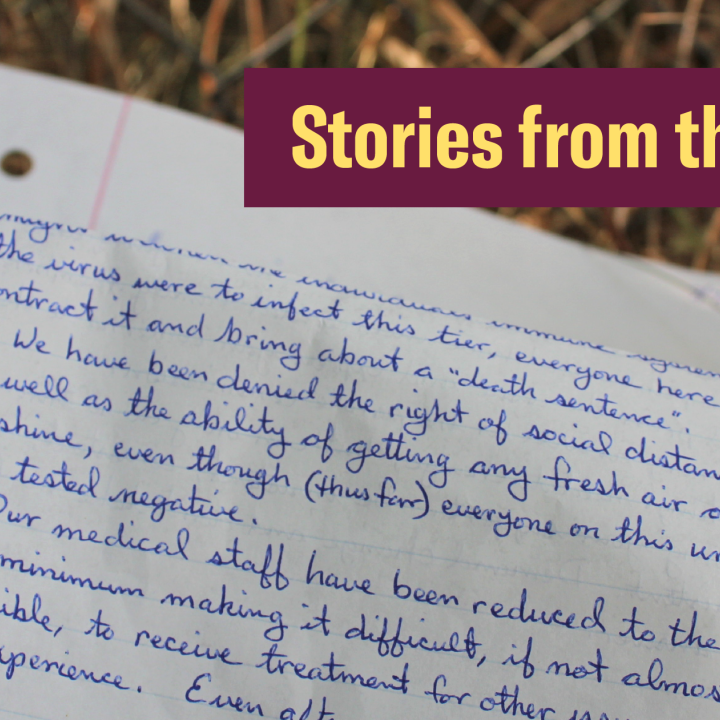 Stories from th
the virus were to infect this tier, everyone here
ontract it and bring about a "death sentence".
We have been denied the right of social distan
well as the ability of getting any fresh air o
shine, even though (thus far) everyone on this un
tested negative.
Our medical staff have been reduced to the
minimum making it difficult, if not almos
ible, to receive treatment for other iss
xperience. Even aft